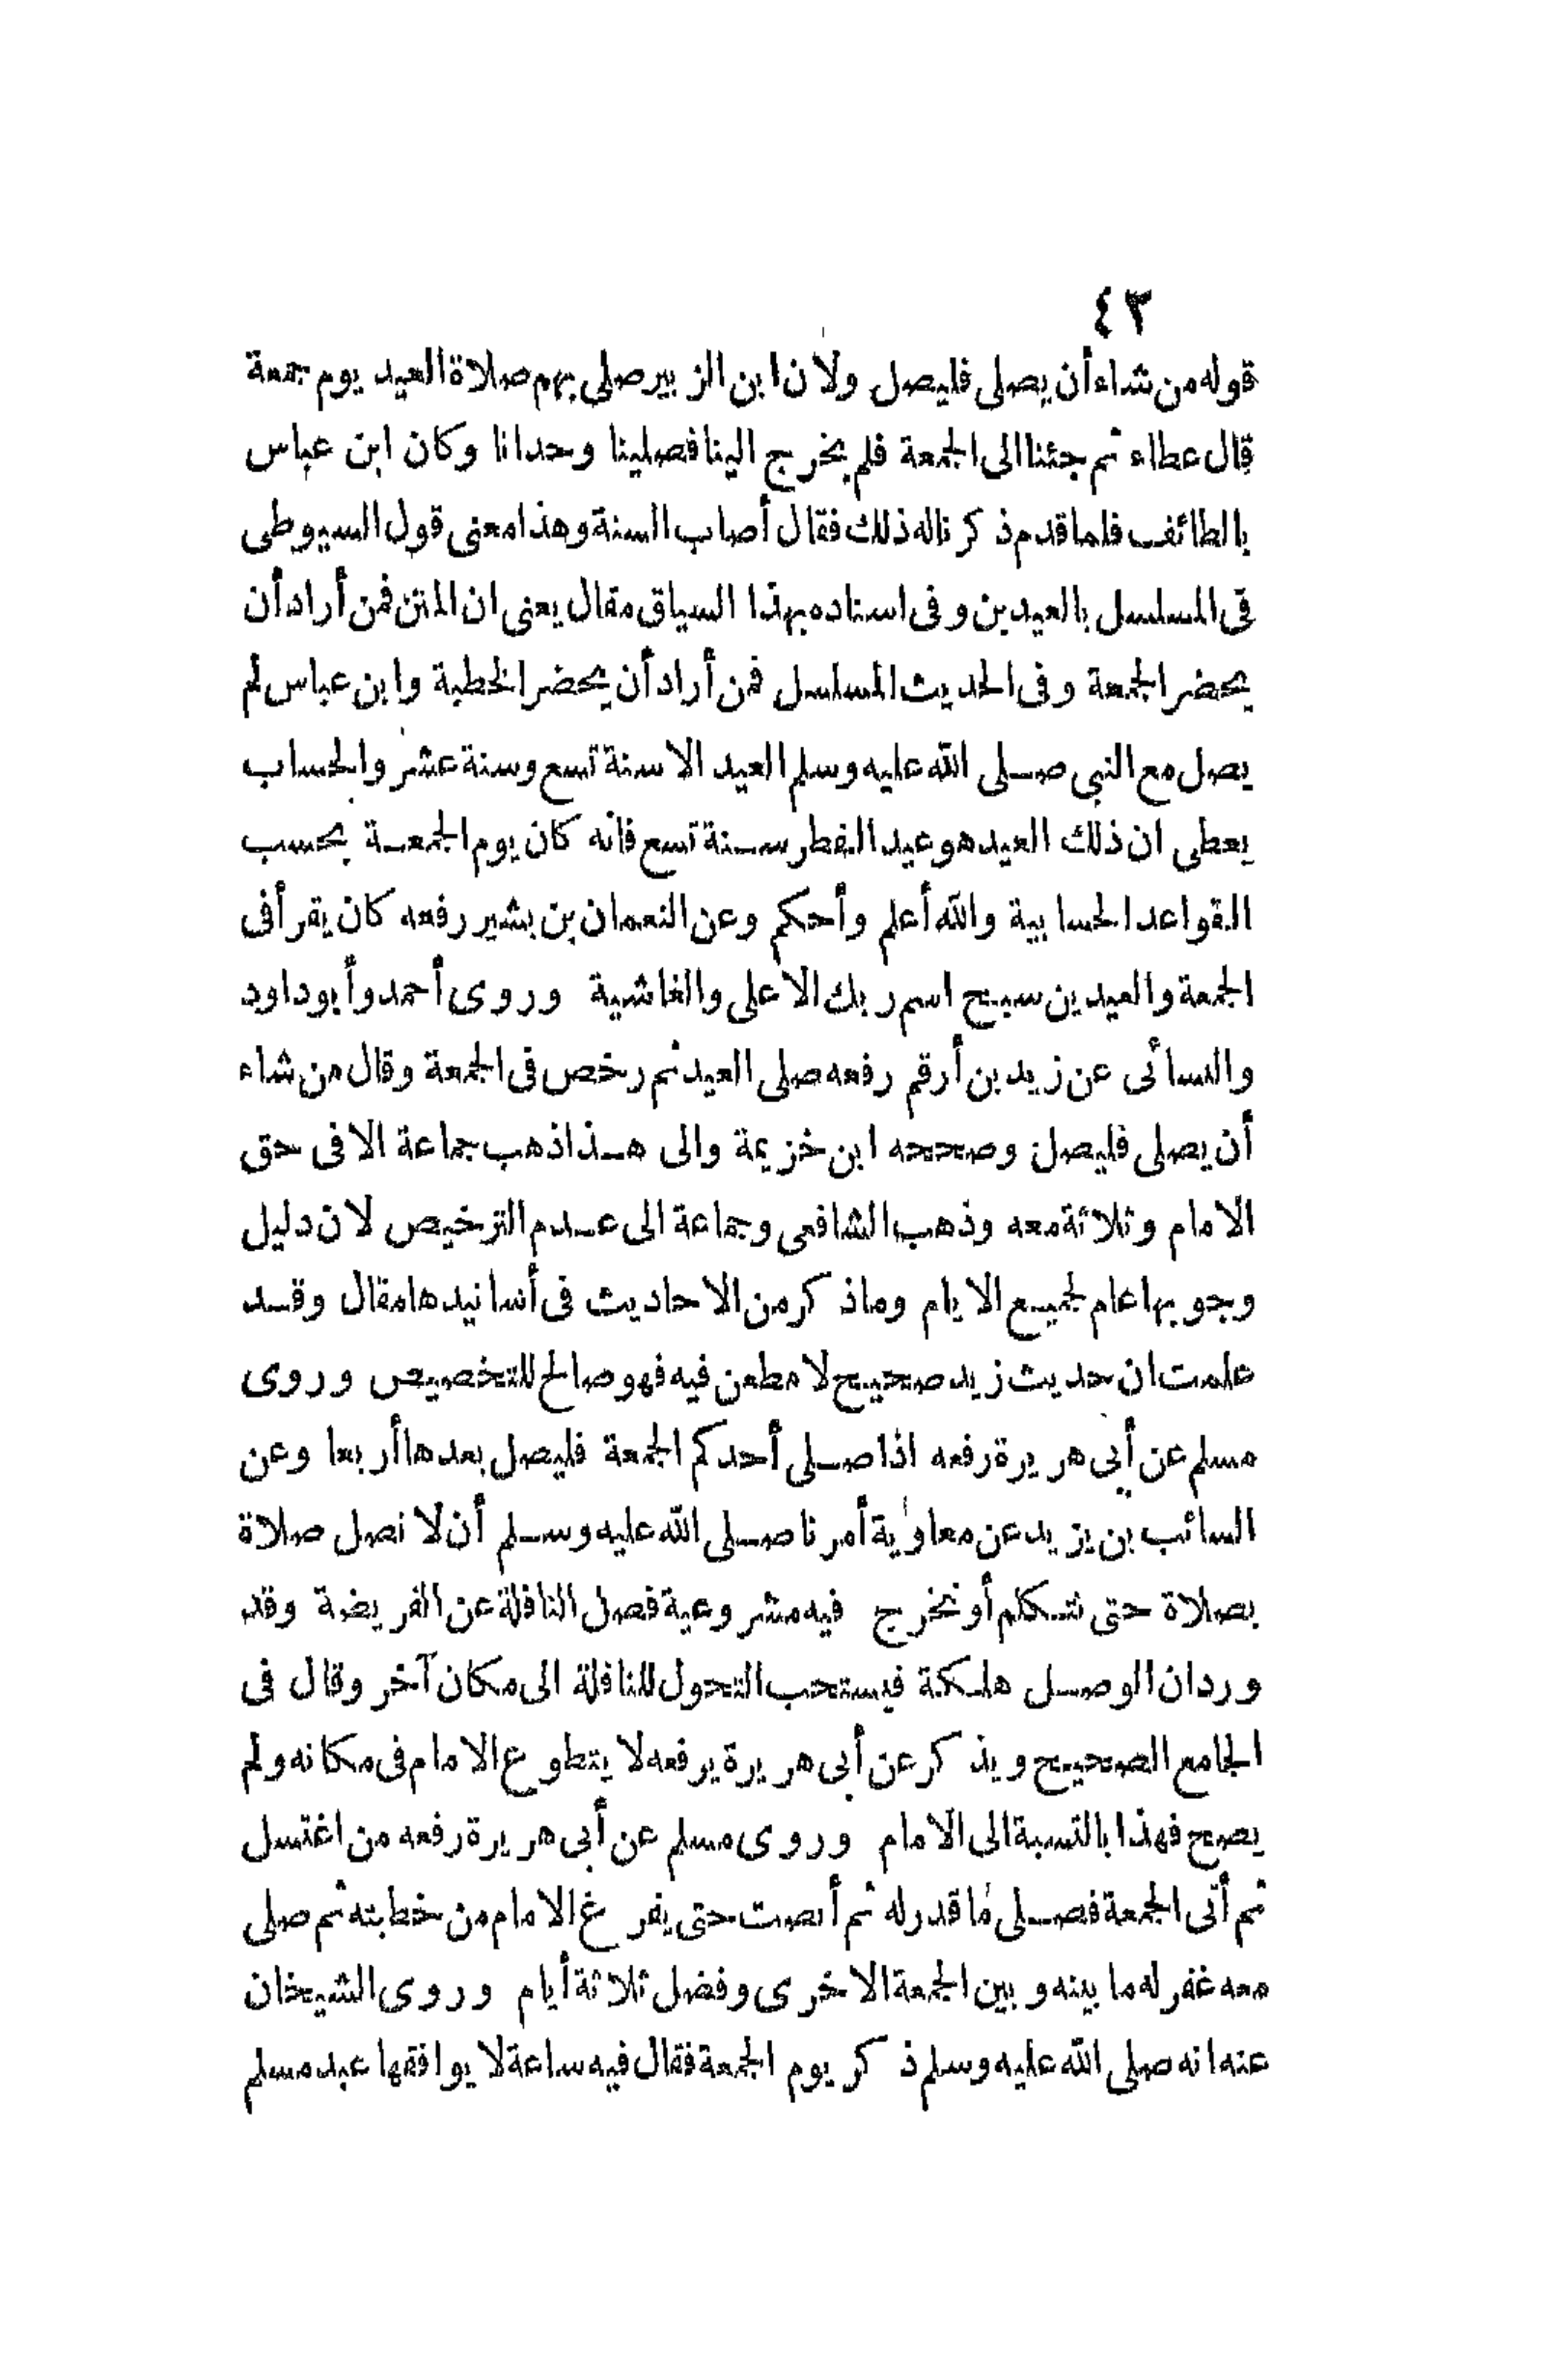 ٤٣
قوله من شاء أن يصلى فليصل ولان ابن الزبير صلى بهم صلاة العيد يوم جمعة
قال عطاء ثم جئنا الى الجمعة فلم يخرج الينا فصلينا وحدانا وكان ابن عباس
بالطائف فلما قدم ذكرناله ذلك فقال أصاب السنة وهذا معنى قول السيوطى
فى المسلسل بالعيدين وفى اسناده بهذا السياق مقال يعنى ان المتن فمن أراد أن
يحضر الجمعة وفى الحديث المسلسل فمن أراد أن يحضر الخطبة وابن عباس لم
يصل مع النبى صلى الله عليه وسلم العيد الا سنة تسع وسنة عشر والحساب
يعطى ان ذلك العيد هو عيد الفطر سنة تسع فانه كان يوم الجمعة بحسب
القواعد الحسابية والله أعلم وأحكم وعن النعمان بن بشير رفعه كان يقرأ فى
الجمعة والعيدين سبح اسم ربك الاعلى والغاشية وروى أحمد وأبو داود
والنسائى عن زيد بن أرقم رفعه صلى العيد ثم رخص فى الجمعة وقال من شاء
أن يصلى فليصل وصححه ابن خزيمة والى هذا ذهب جماعة الا فى حق
الامام وثلاثة معه وذهب الشافعى وجماعة الى عدم الترخيص لان دليل
وجوبها عام لجميع الايام وماذكر من الاحاديث فى أسانيدها مقال وقد
علمت ان حديث زيد صحيح لا مطعن فيه فهو صالح للتخصيص وروى
مسلم عن أبى هريرة رفعه اذا صلى أحدكم الجمعة فليصل بعدها أربعا وعن
السائب بن يزيد عن معاوية أمرنا صلى الله عليه وسلم أن لا نصل صلاة
بصلاة حتى نتكلم أو نخرج فيه مشروعية فصل النافلة عن الفريضة وقد
ورد ان الوصل هلكة فيستحب التحول للنافلة الى مكان آخر وقال فى
الجامع الصحيح ويذكر عن أبى هريرة يرفعه لا يتطوع الامام فى مكانه ولم
يصح فهذا بالنسبة الى الامام وروى مسلم عن أبى هريرة رفعه من اغتسل
ثم أتى الجمعة فصلى ما قدر له ثم أنصت حتى يفرغ الامام من خطبته ثم صلى
معه غفر له ما بينه وبين الجمعة الاخرى وفضل ثلاثة أيام وروى الشيخان
عنه انه صلى الله عليه وسلم ذكر يوم الجمعة فقال فيه ساعة لا يوافقها عبد مسلم